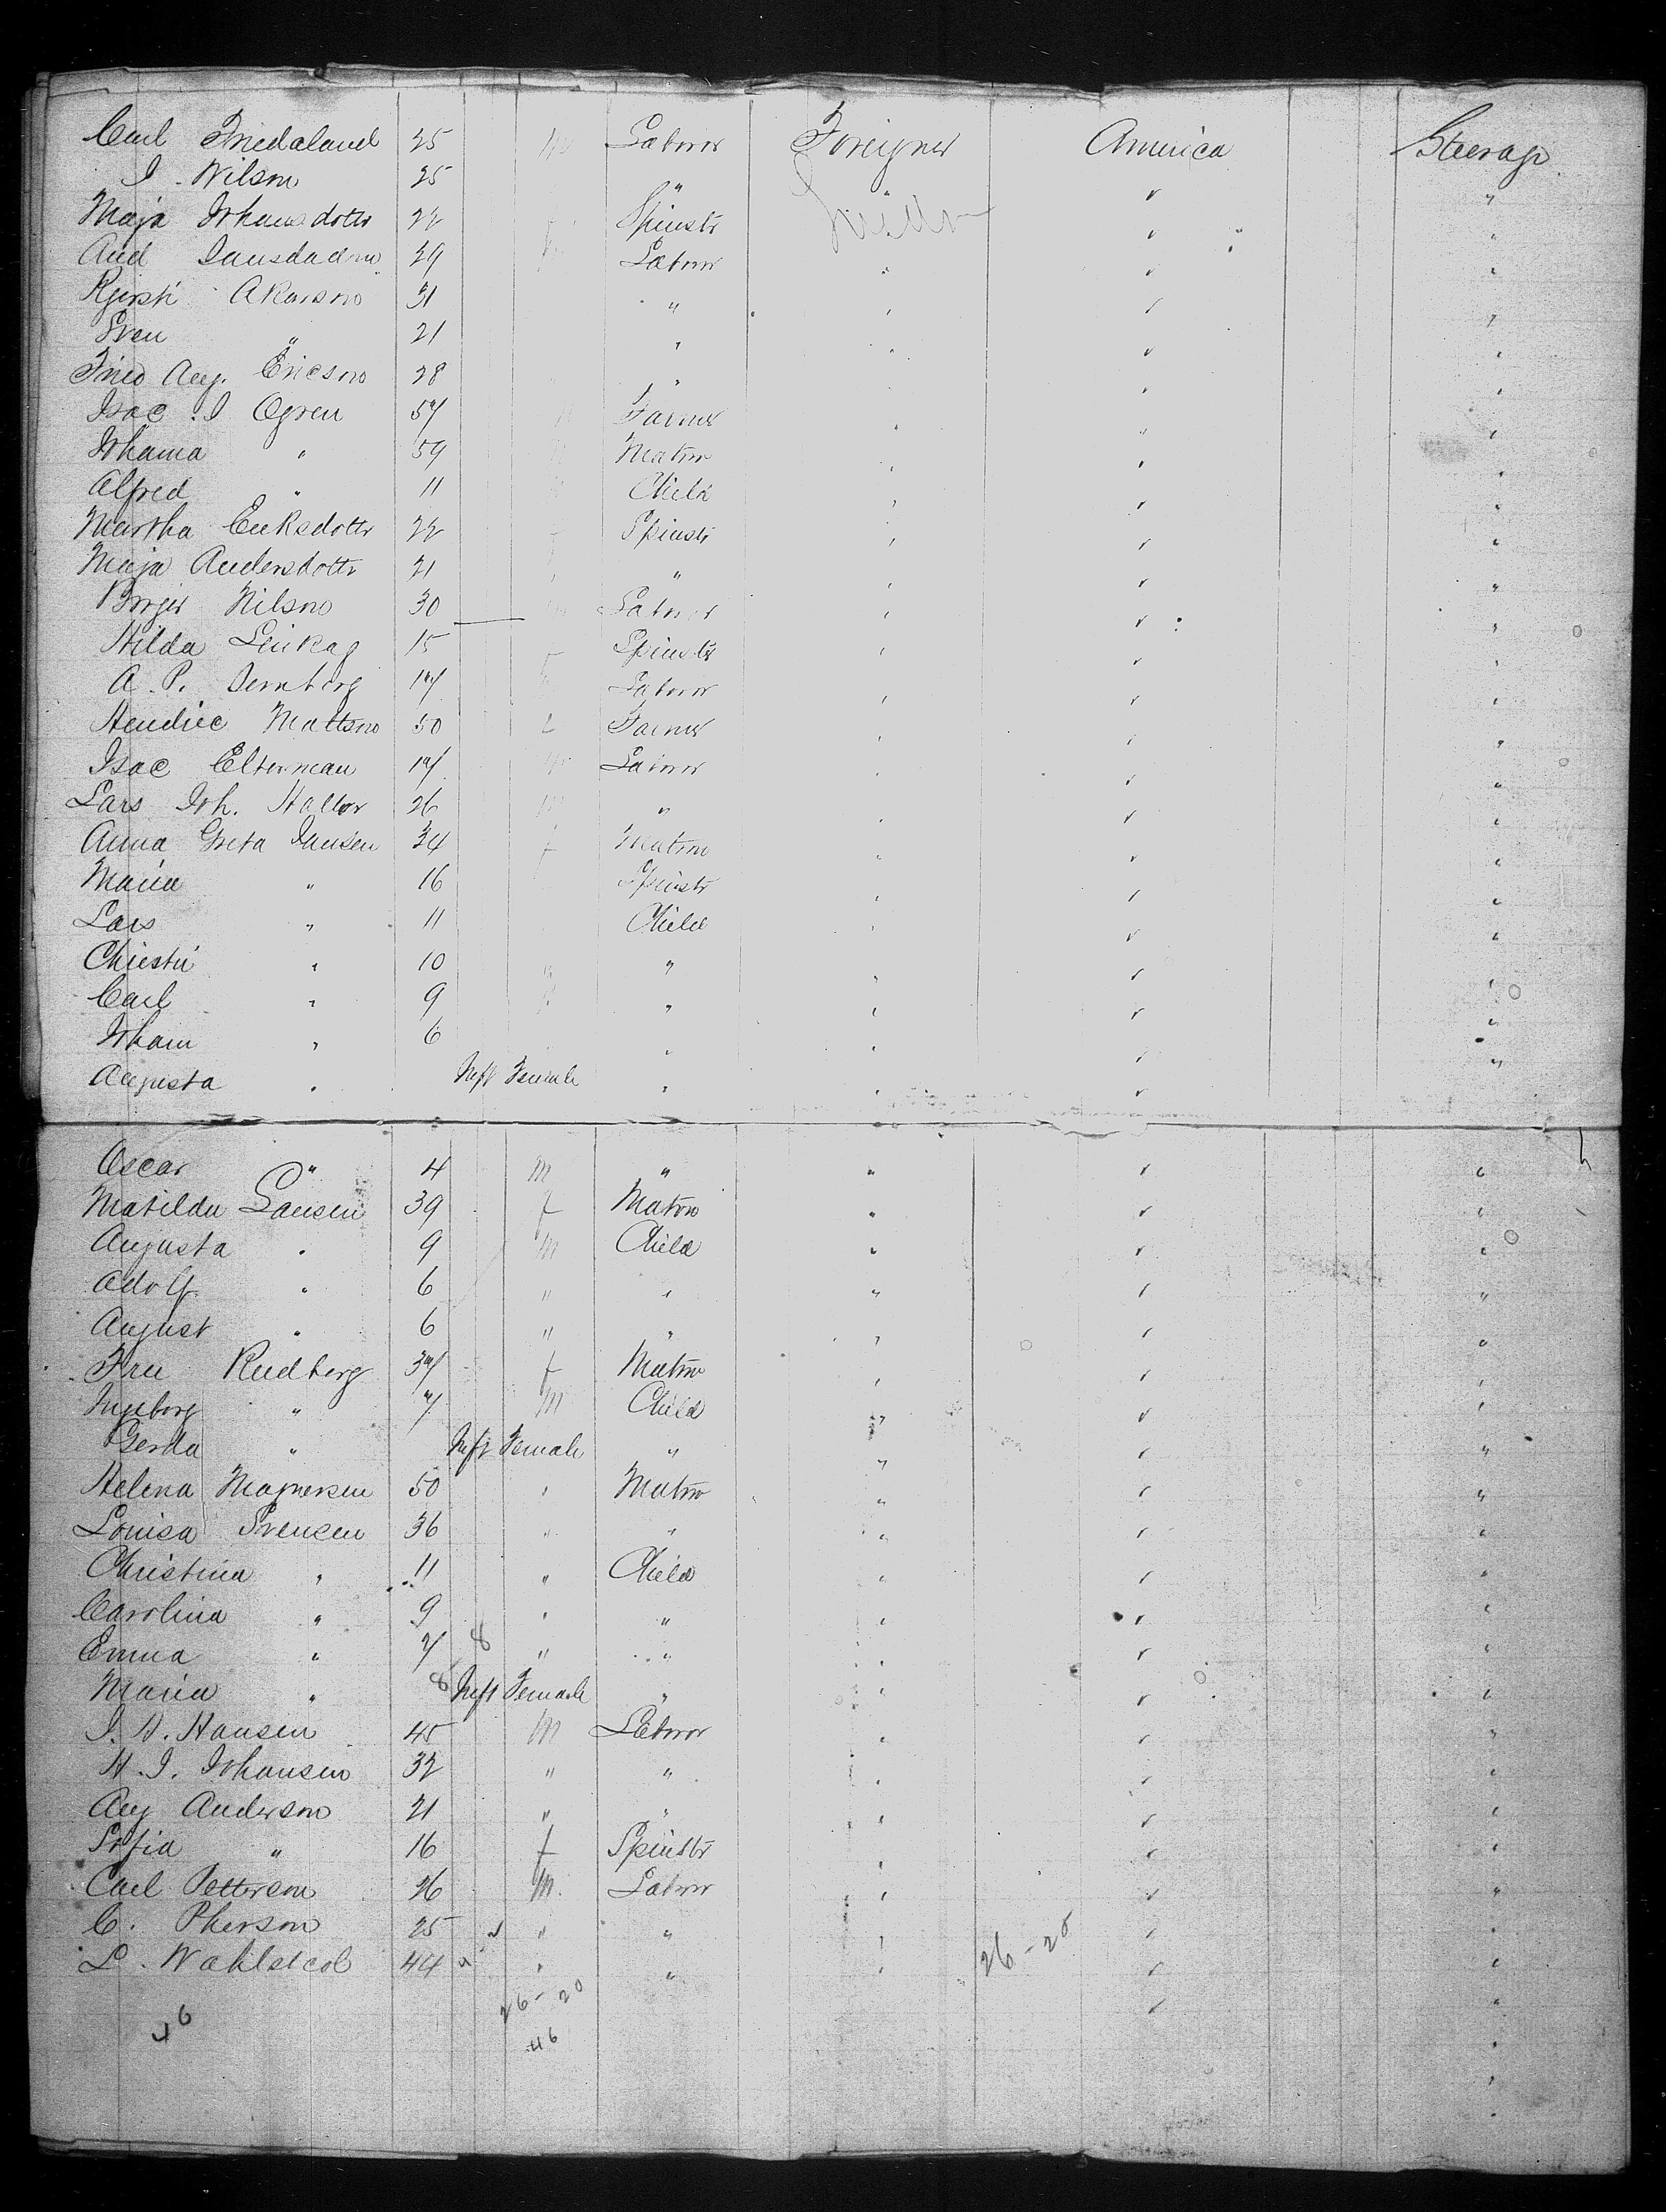 Carl Friedaland 25 m Labrer Foreigner America Steerage
J. Nilson 25 " " "
Maja Johansdotter 22 f Spinstr "
And Jansdadm 29 Labrer " "
Kjersti Akarson 31 " " "
Sven " 21 " " "
Fried Aug. Ericson 28 " " "
Isac J Ogren 57 Farmer " " "
Johanna " 59 Matron " " "
Alfred " 11 Child " " "
Martha Eriksdottr 22 Spinstr " " "
Maja Andersdottr 21 " " "
Borger Nilson 30 Labrer " " "
Hilda 15 Spinstr " " "
A. P. Sernberg 17 Labrer " "
Hendric Mattson 50 Farmer " " "
Isac Elterman 17 Labrer " " "
Lars Joh. Hallor 26 m " " "
Anna Greta Jansen 34 f Matron " " "
Maria " 16 Spinstr " " "
Lars " 11 Child " " "
Christin " 10 " " " "
Carl " 9 " " "
Johan " 6 " " "
Augusta " Inft Female " " "
Oscar " 4 m " " "
Matilda Lansen 39 f Matron " "
Augusta " 9 m Child " "
Adolf " 6 " " " "
August " 6 " " " "
Fru Rudberg 37 f Matron " "
Ingeborg " 7 m Child " "
Gerda " Inft Female " " "
Helena Magnersen 50 " Matron " "
Louisa Svensen 36 " " " "
Christina " 11 " Child " "
Carolina " 9 " " " "
Emma " 7 8 " " " "
Maria " 8 Inft Female " " "
J. H. Hansen 45 m Labror " "
H. J. Johansen 32 " " " "
Aug Anderson 21 " " " "
Sofia " 16 f Spinstr " "
Carl Petterson 26 m. Labror " "
C. Pherson 25 " " " "
L. Wahlstcol 44 " " " 26-20 "
26-20
46 46